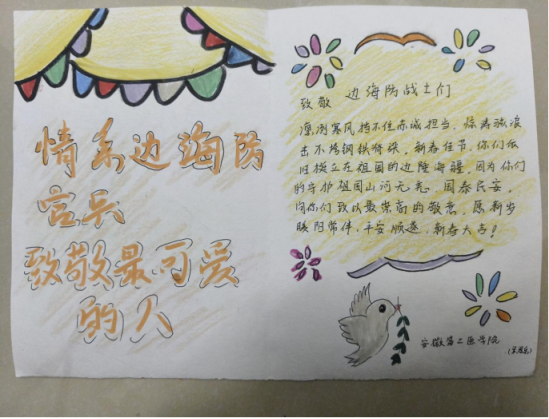 情系边海防
官兵
致敬最可爱
的人
致敬 边海防战士们
凛冽寒风挡不住赤诚担当，惊涛骇浪
击不垮钢铁脊梁，新春佳节，你们依
旧挺立在祖国的边陲海疆，因为你们
的守护祖国山河无恙，国泰民安，
向你们致以最崇高的敬意，愿新岁
暖阳常伴，平安顺遂，新春大吉！
安徽第二医学院